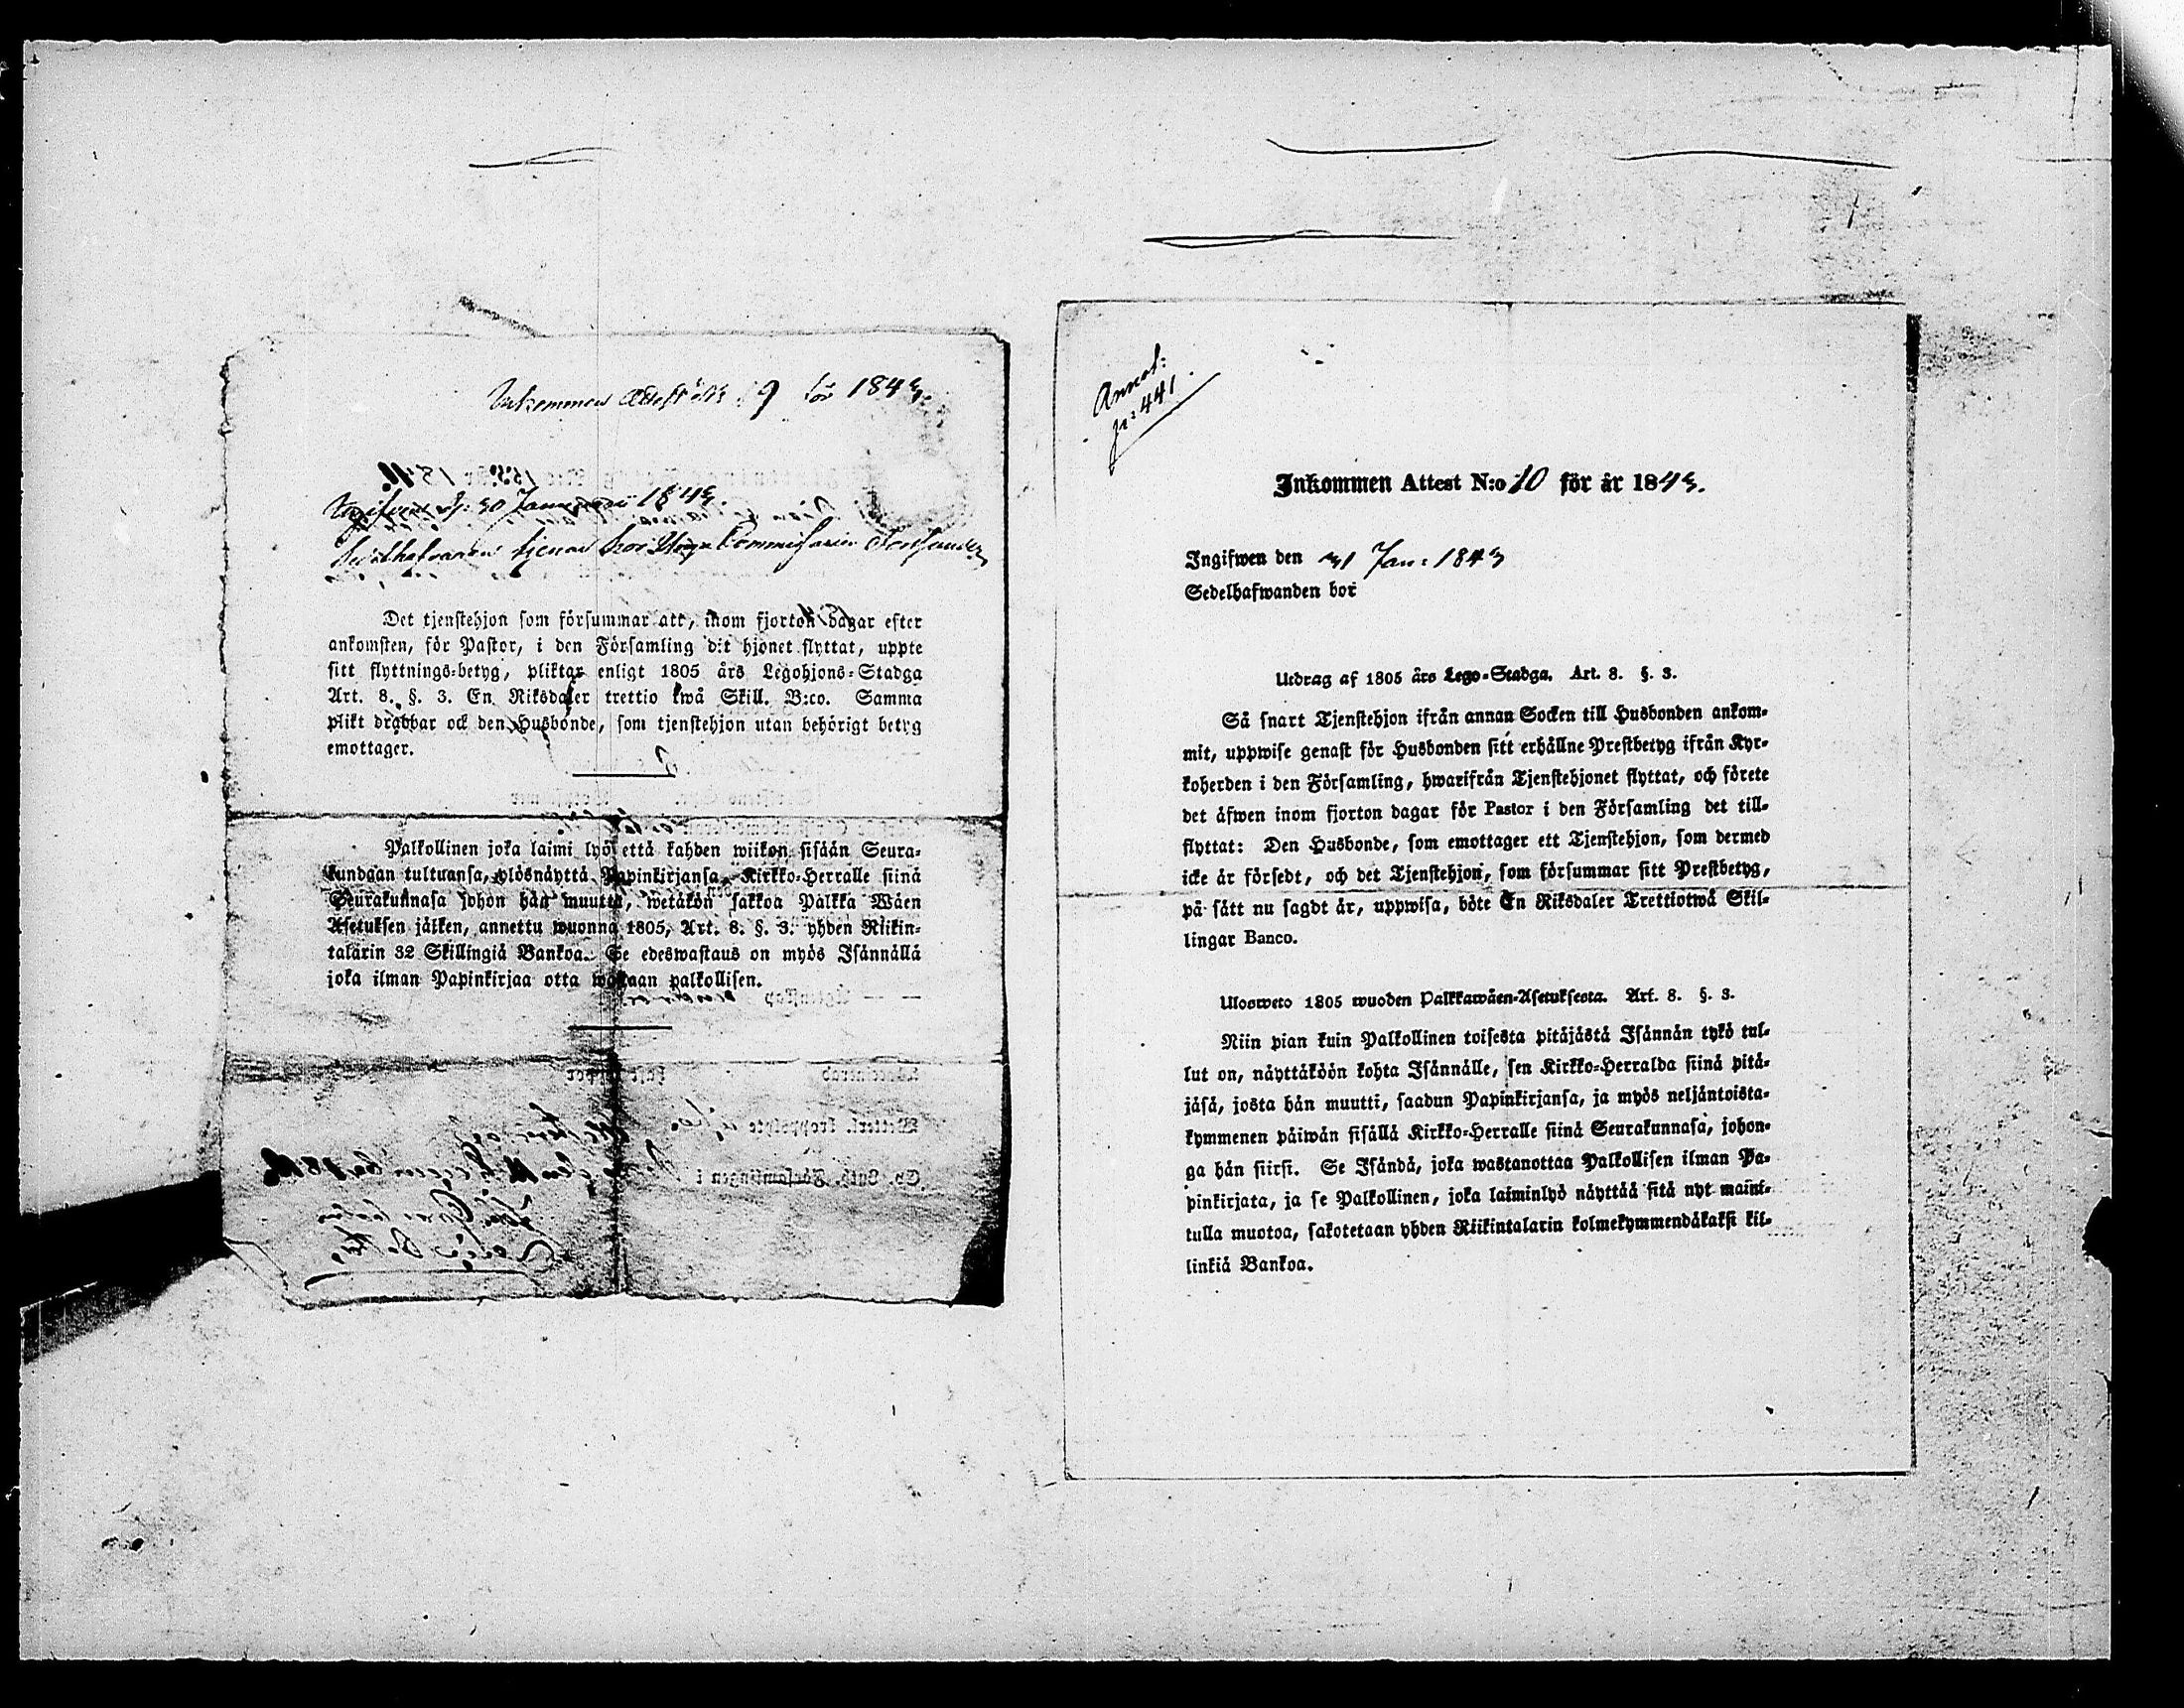 Inkommen Attest No 9 för 1843.
Ingifven d. 30 Januarii 1843.
Sedelhafvanden tjenar hos Commissarien
Det tjenstehjon som försummar att, inom fjorton dagar efter
ankomsten, för Pastor, i den Församling dit hjonet flyttat, uppte
sitt flyttnings-betyg, pliktar enligt 1805 års Legohjons-Stadga
Art. 8. §. 3. En Riksdaler trettio twå Skill. B:co. Samma
plikt drabbar ock den Husbonde, som tjenstehjon utan behörigt betyg
emottager.
Palkollinen joka laimi lyö että kahden wiikon sisään Seura-
kundaan tultuansa, ylösnäyttä Papinkirjansa Kirkko-Herralle siinä
Seurakunnasa johon hän muutta, wetäkön sakkoa Palkka Wäen
Asetuksen jälken, annettu wuonna 1805, Art. 8. §. 3. yhden Riikin-
talarin 32 Skillingiä Bankoa. Se edeswastaus on myös Isännällä
joka ilman Papinkirjaa otta wastaan palkollisen.
Annot:
p: 441.
Inkommen Attest N:o 10 för år 1843.
Ingifwen den 31 Jan: 1843
Sedelhafwanden bor
Utdrag af 1805 års Lego-Stadga. Art. 8. §. 3.
Så snart Tjenstehjon ifrån annan Socken till Husbonden ankom-
mit, uppwise genast för Husbonden sitt erhållne Prestbetyg ifrån Kyr-
koherden i den Församling, hwarifrån Tjenstehjonet flyttat, och förete
det äfwen inom fjorton dagar för Pastor i den Församling det till-
flyttat: Den Husbonde, som emottager ett Tjenstehjon, som dermed
icke är försedt, och det Tjenstehjon, som försummar sitt Prestbetyg,
på sätt nu sagdt är, uppwisa, böte En Riksdaler Trettiotwå Skil-
lingar Banco.
Ulosweto 1805 wuoden Palkkawäen-Asetuksesta. Art. 8. §. 3.
Niin pian kuin Palkollinen toisesta pitäjästä Isännän tykö tul-
lut on, näyttäköön kohta Isännälle, sen Kirkko-Herralda siinä pitä-
jäsä, josta hän muutti, saadun Papinkirjansa, ja myös neljäntoista-
kymmenen päiwän sisällä Kirkko-Herralle siinä Seurakunnasa, johon-
ga hän siirsi. Se Isändä, joka wastanottaa Palkollisen ilman Pa-
pinkirjata, ja se Palkollinen, joka laiminlyö näyttää sitä nyt maini-
tulla muotoa, sakotetaan yhden Riikintalarin kolmekymmendäkaksi kil-
linkiä Bankoa.